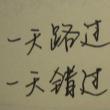 一天路过
一天错过